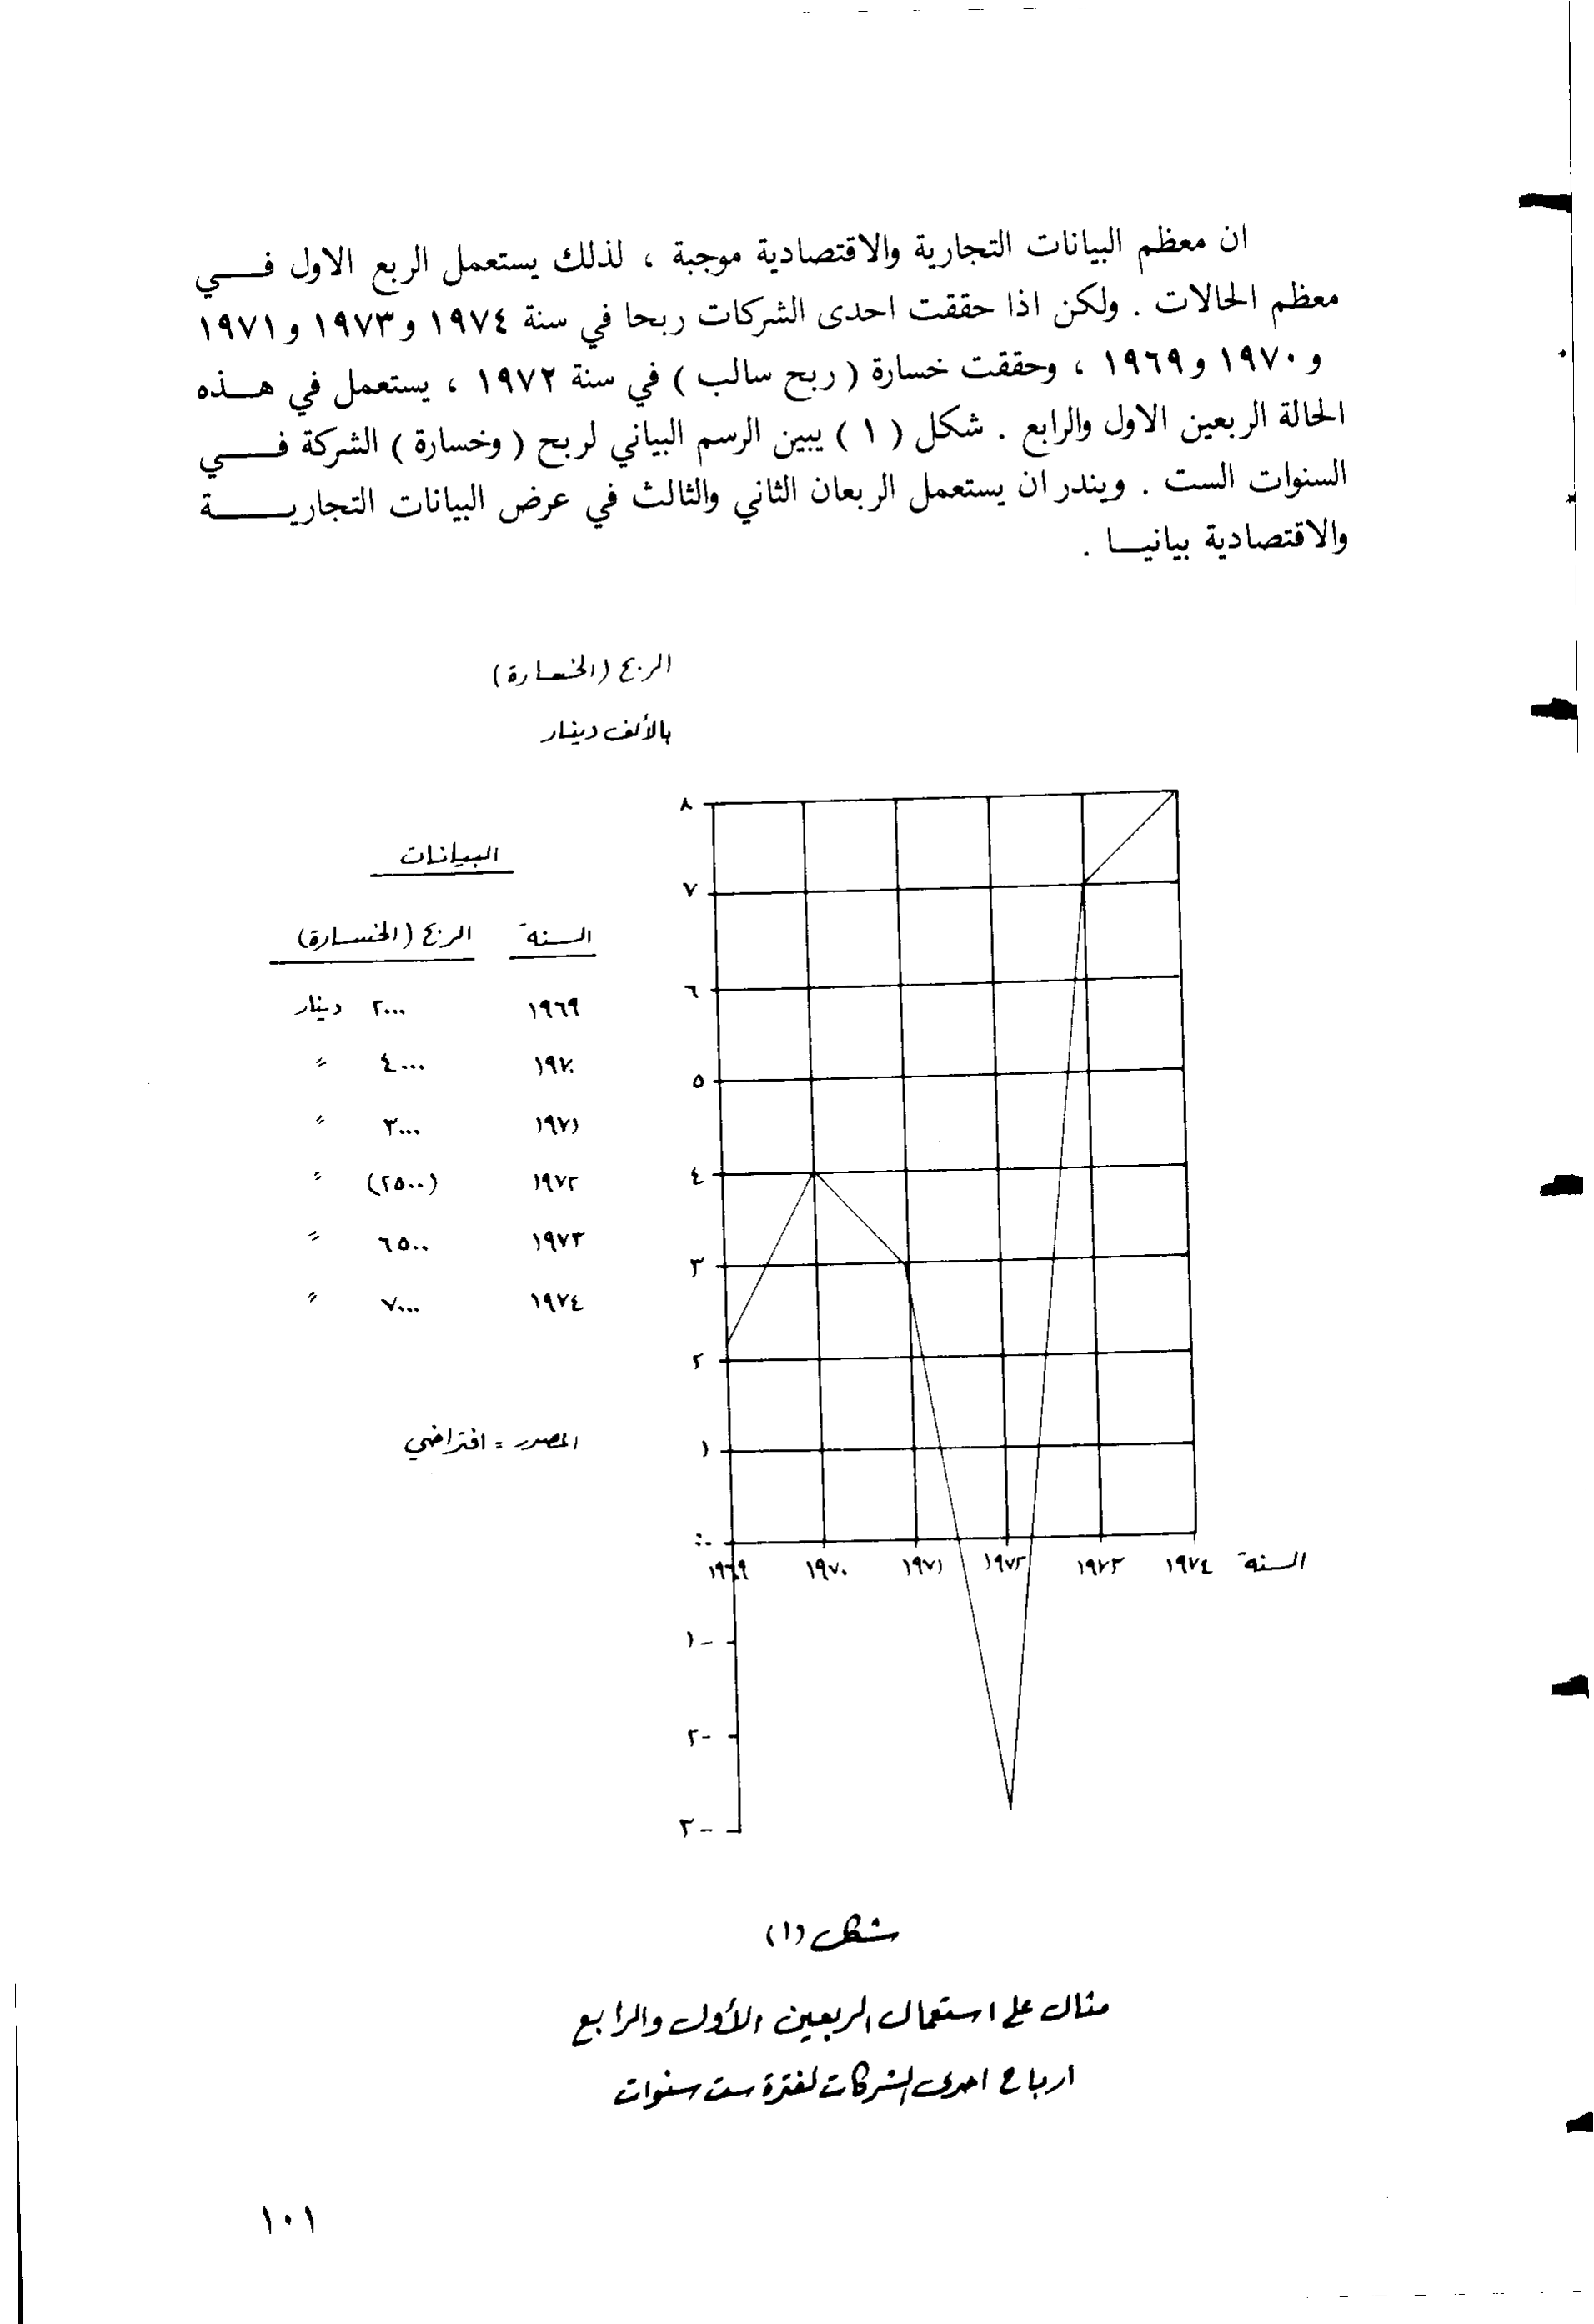 ان معظم البيانات التجارية والاقتصادية موجبة ، لذلك يستعمل الربع الاول فـــي
معظم الحالات . ولكن اذا حققت احدى الشركات ربحا في سنة ١٩٧٤ و١٩٧٣ و١٩٧١
و١٩٧٠ و١٩٦٩ ، وحققت خسارة ( ربح سالب ) في سنة ١٩٧٢ ، يستعمل في هــذه
الحالة الربعين الاول والرابع . شكل ( ١ ) يبين الرسم البياني لربح ( وخسارة ) الشركة فـــي
السنوات الست . ويندر ان يستعمل الربعان الثاني والثالث في عرض البيانات التجاريـــة
والاقتصادية بيانيــا .
الربح (الخسارة)
بالألف دينار
البيانات
السنة الربح (الخسارة)
١٩٦٩ ٢٠٠٠ دينار
١٩٧٠ ٤٠٠٠ "
١٩٧١ ٣٠٠٠ "
١٩٧٢ (٢٥٠٠) "
١٩٧٣ ٦٥٠٠ "
١٩٧٤ ٧٠٠٠ "
المصدر = افتراضي
٨
٧
٦
٥
٤
٣
٢
١
٠
١٩٦٩ ١٩٧٠ ١٩٧١ ١٩٧٢ ١٩٧٣ ١٩٧٤ السنة
١-
٢-
٣-
شكل (١)
مثال على استعمال الربعين الأول والرابع
ارباح احدى الشركات لفترة ست سنوات
١٠١